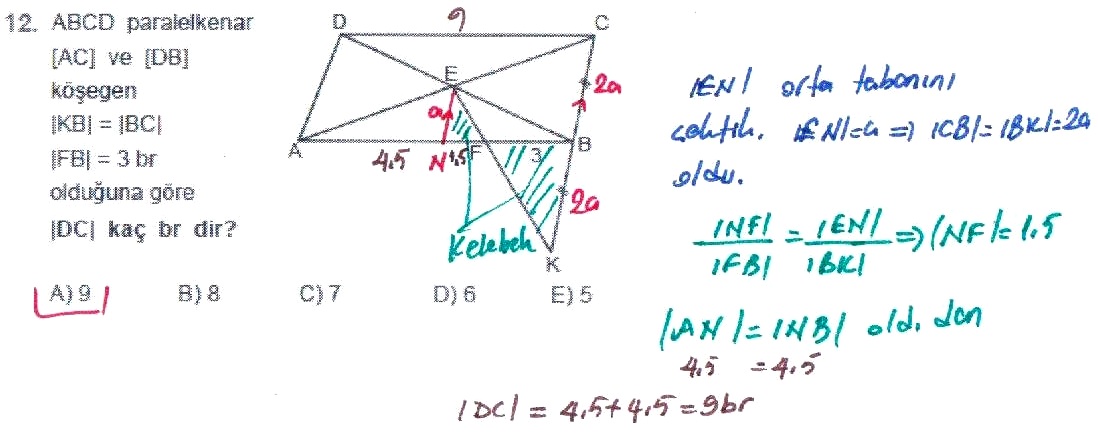 12. ABCD paralelkenar
[AC] ve [DB]
köşegen
|KB| = |BC|
|FB| = 3 br
olduğuna göre
|DC| kaç br dir?
D
9
C
E
2a
a
A
4.5
N
1.5
F
3
B
2a
Kelebek
K
A) 9 B) 8 C) 7 D) 6 E) 5
|EN| orta tabanını
çektik. |EN|=a => |CB|=|BK|=2a
oldu.
|NF| / |FB| = |EN| / |BK| => |NF|=1.5
|AN|=|NB| old. dan
4.5 = 4.5
|DC| = 4.5+4.5=9br